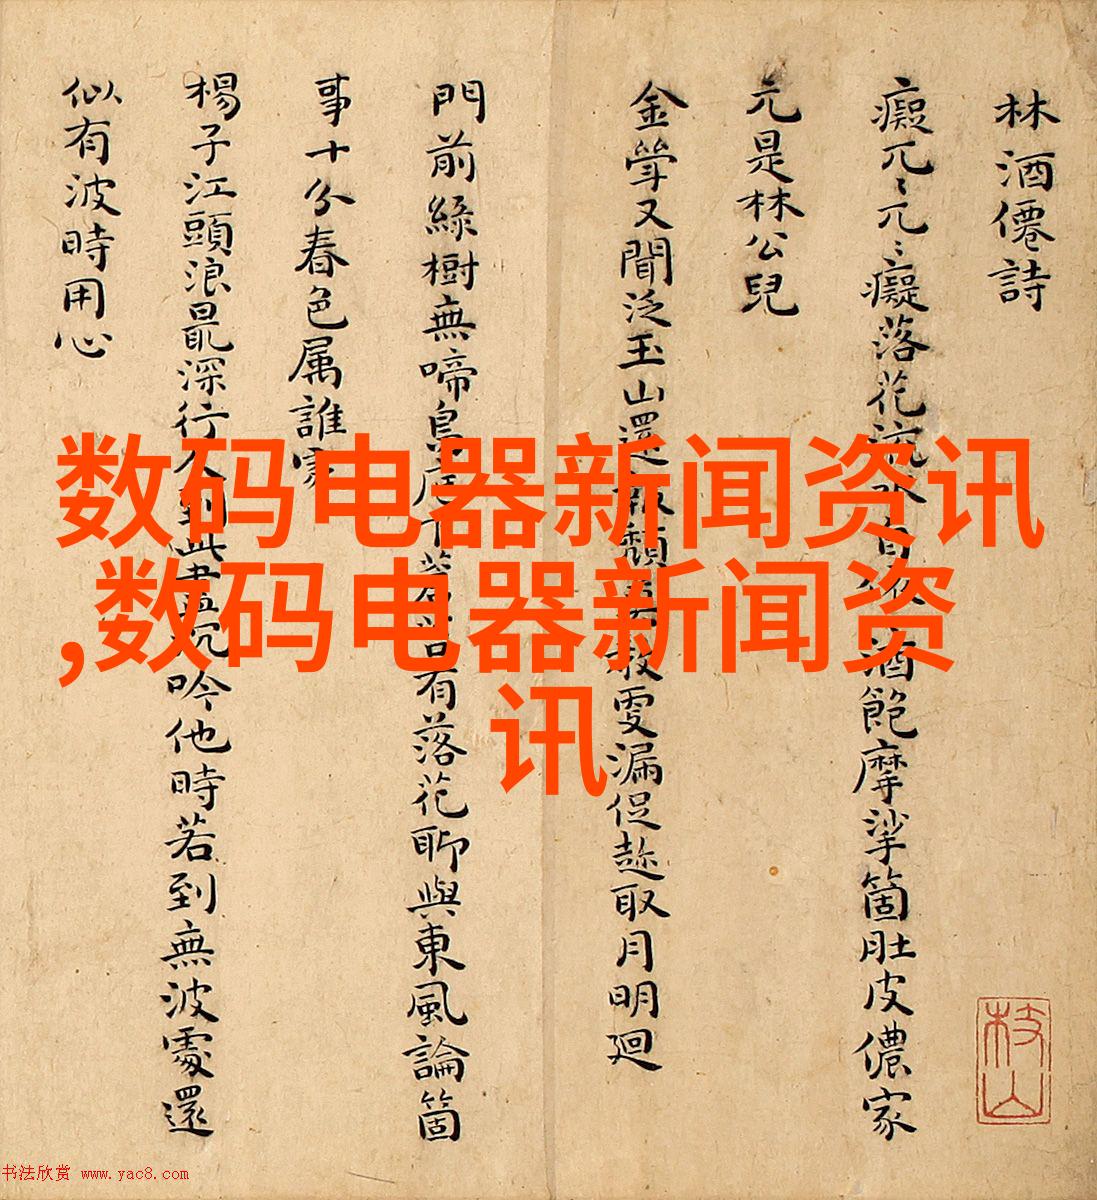 林酒僊詩
癡兀〻兀〻癡落花流水自酒飽摩挲箇肚皮儂家
元是林公兒
金斝又聞泛玉山還頹莫教更漏促趁取月明迴
門前綠樹無啼鳥庭下蒼苔有落花聊與東風論箇
事十分春色属誰家
楊子江頭浪最深行人到此盡沉吟他時若到無波處還
似有波時用心
枝山
数码电器新闻资讯
,数码电器新闻资
讯
书法欣赏 www.yac8.com